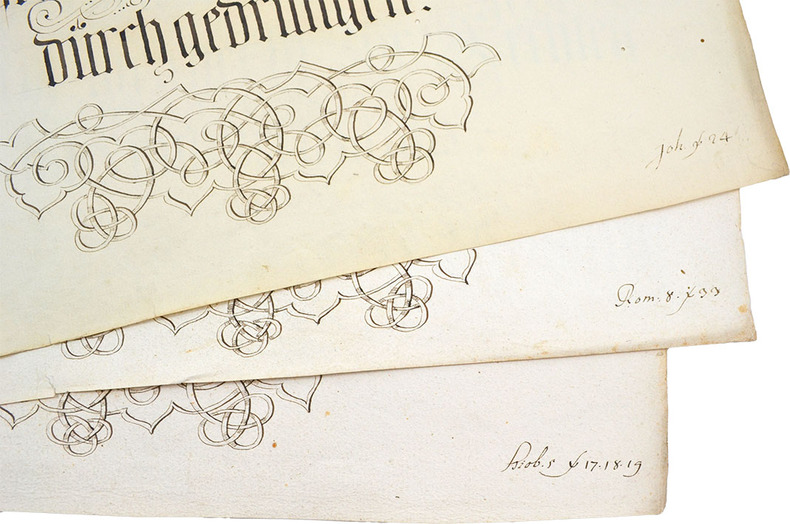 dŭrch gedrungen.
Joh. ℣ 24
Rom. 8. ℣ 33
Hiob. 5 ℣ 17. 18. 19